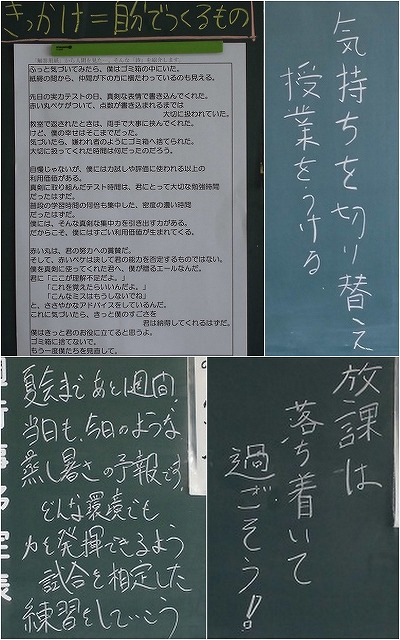 きっかけ＝自分でつくるもの
「解答用紙」から人間を見た、そんな「詩」を紹介します。
ふっと気づいてみたら、僕はゴミ箱の中にいた。
紙屑の間から、仲間が下の方に横たわっているのも見える。
先日の実力テストの日、真剣な表情で書き込んでくれた。
赤い丸ペケがついて、点数が書き込まれるまでは
大切に扱われていた。
教室で返されたときは、両手で大事に挟んでくれた。
けど、僕の幸せはそこまでだった。
気づいたら、嫌われ者のようにゴミ箱へ捨てられた。
大切に扱ってくれた時間は何だったのだろう。
自慢じゃないが、僕には力試しや評価に使われる以上の
利用価値がある。
真剣に取り組んだテスト時間は、君にとって大切な勉強時間
だったはずだ。
普段の学習時間の何倍も集中した、密度の濃い時間
だったはずだ。
僕には、そんな真剣な集中力を引き出す力がある。
だからこそ、僕にはすごい利用価値が生まれてくる。
赤い丸は、君の努力への賞賛だ。
そして、赤いペケは決して君の能力を否定するものではない。
僕を真剣に使ってくれた君へ、僕が贈るエールなんだ。
君に「ここが理解不足だよ。」
「これを覚えたらいいんだよ。」
「こんなミスはもうしないでね」
と、ささやかなアドバイスをしているんだ。
これに気づいたら、きっと僕のすごさを
君は納得してくれるはずだ。
僕はきっと君のお役に立てると思うよ。
ゴミ箱に捨てないで。
もう一度僕たちを見直して。
気持ちを切り替え
授業をうける
夏会まであと1週間!
当日も、今日のような
蒸し暑さの予報です。
どんな環境でも
力を発揮できるよう
試合を想定した
練習をしていこう
行事予定表
放課は
落ち着いて
過ごそう!!